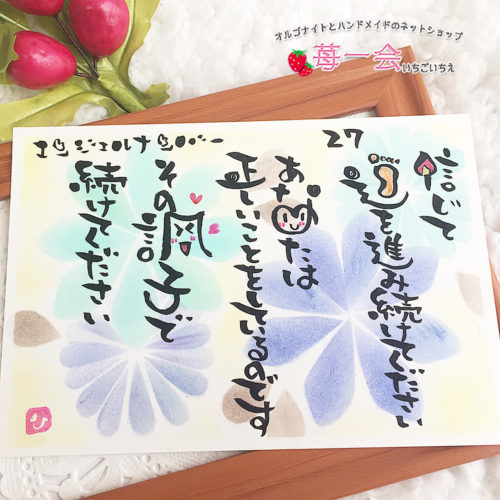 オルゴナイトとハンドメイドのネットショップ
苺一会
いちごいちえ
エンジェルナンバー 27
信じて
道を進み続けてください
あなたは
正しいことをしているのです
その調子で
続けてください
ひ